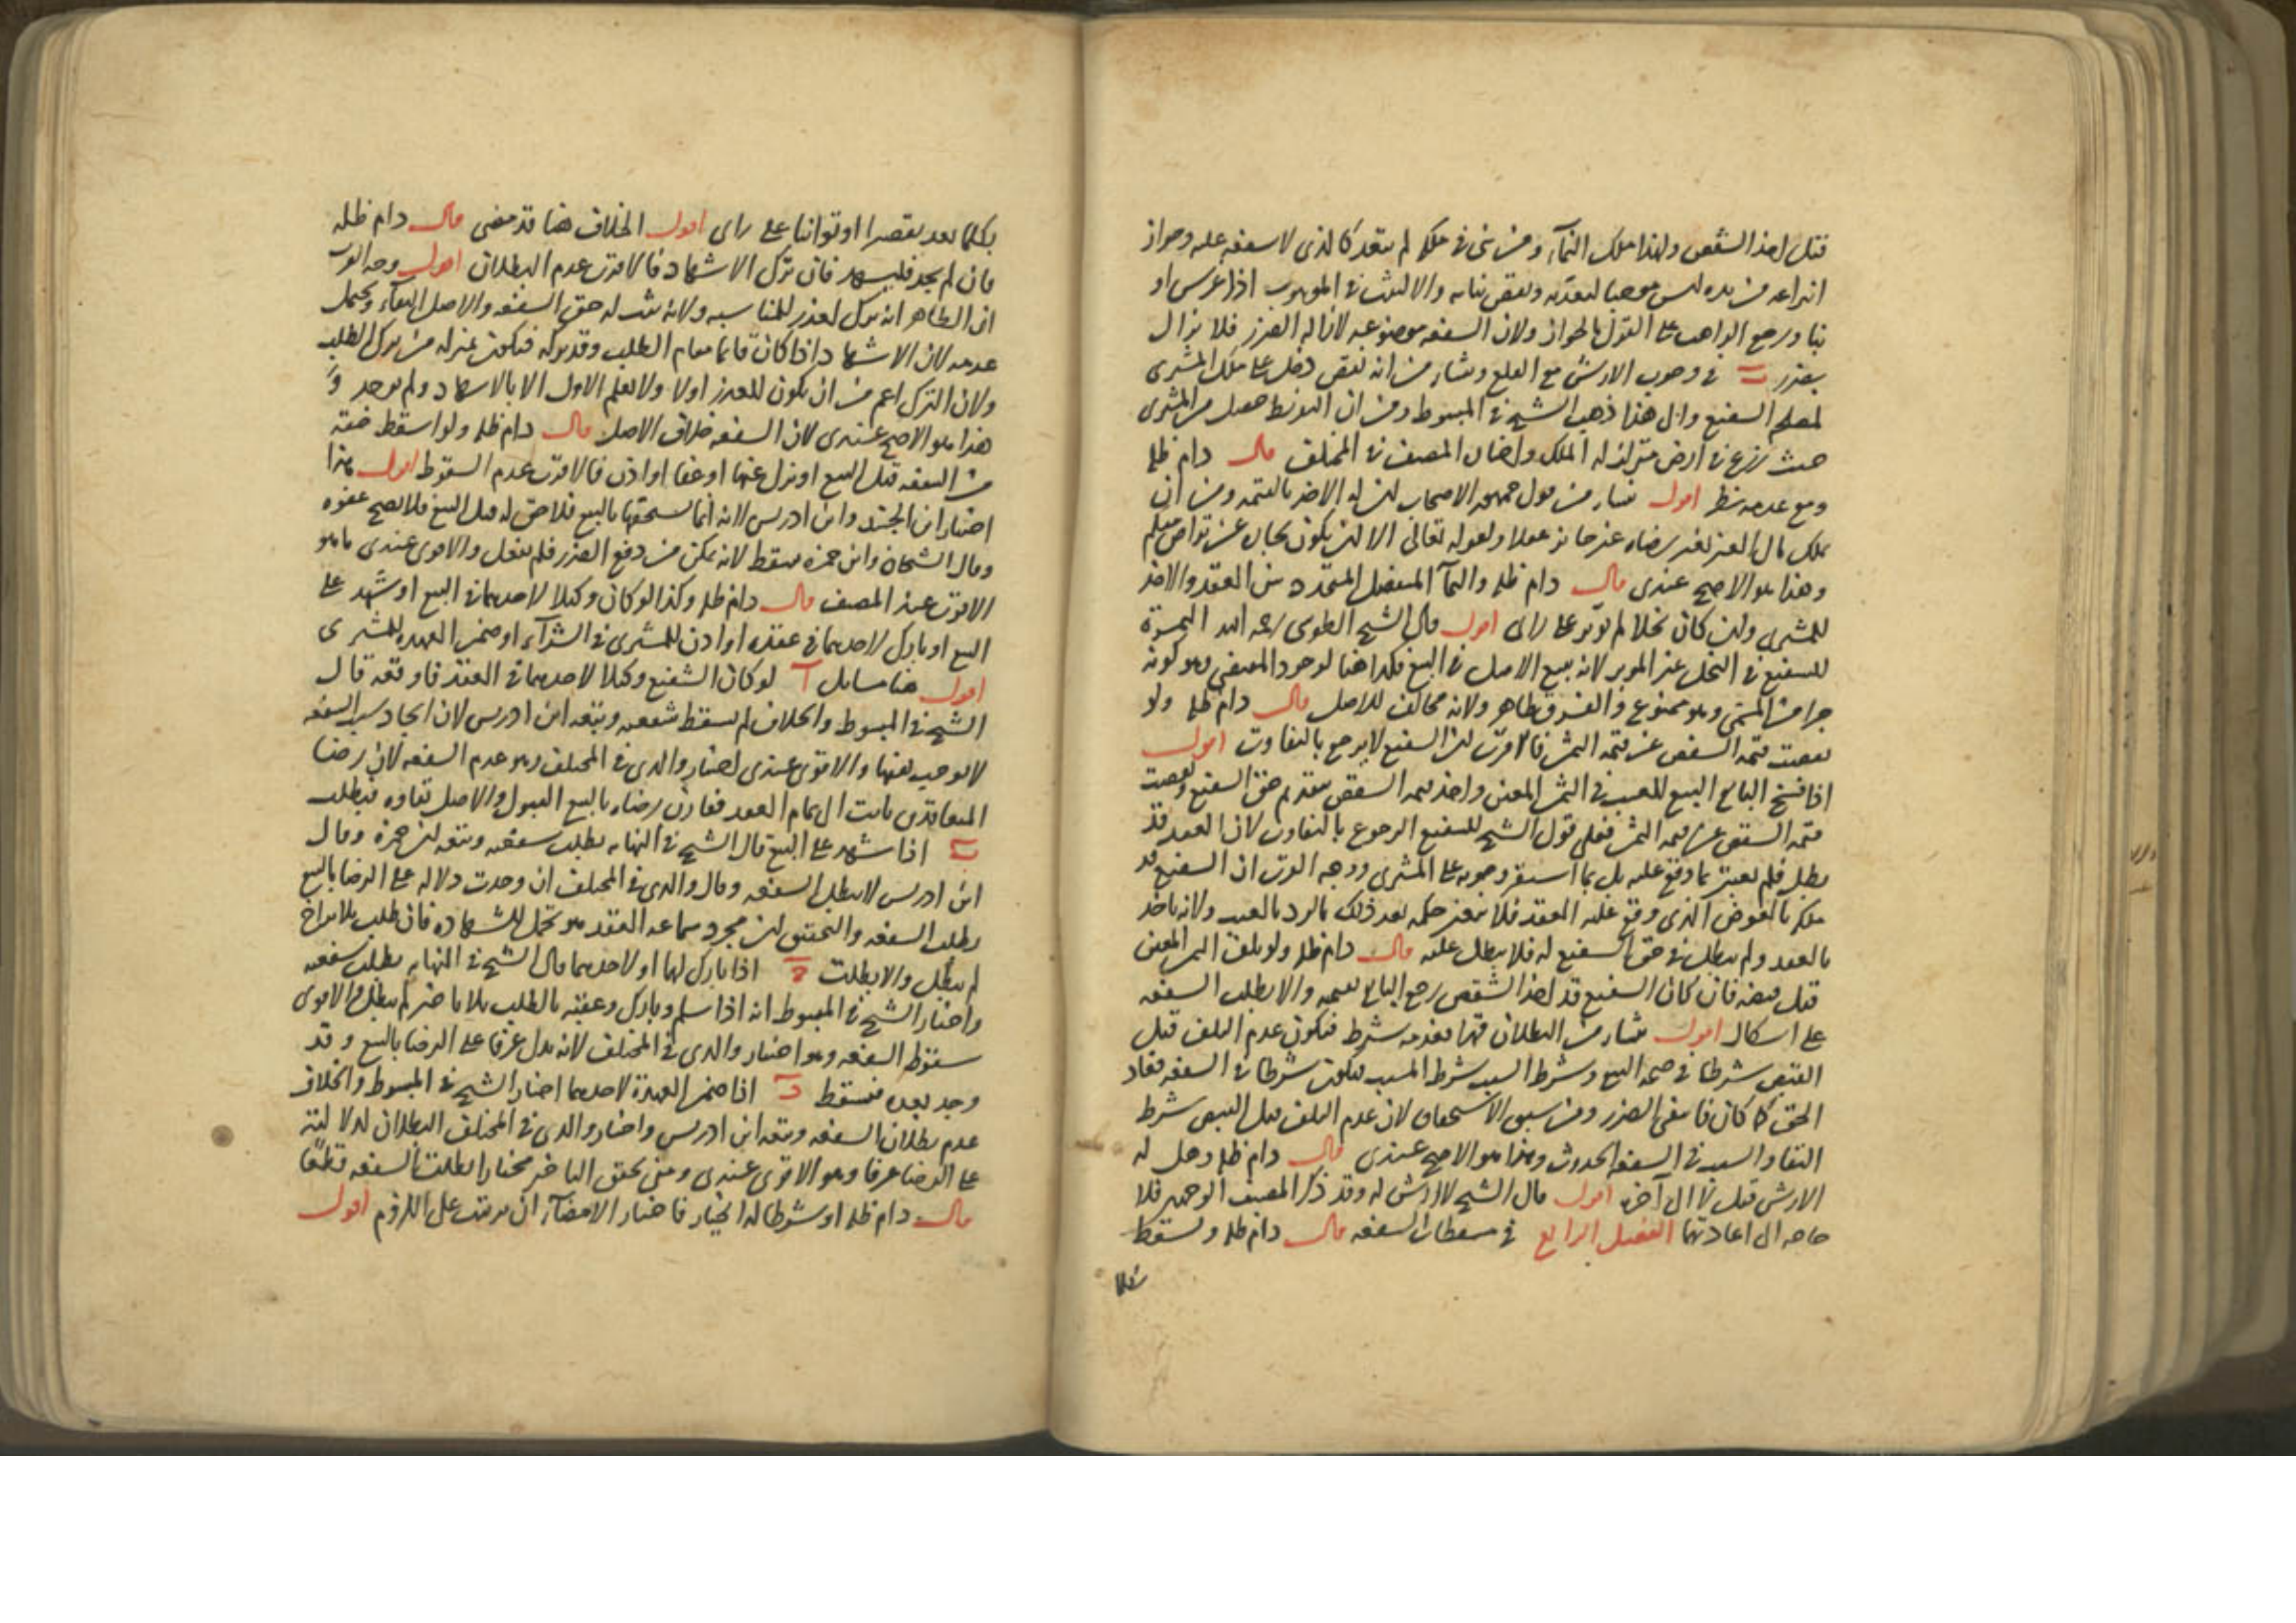 قبل اخذ الشقص ولهذا ملك النمآء ومن بنى فى ملكه لم يتعد كالذى لا شفعة عليه وجواز
انتزاعه من يده ليس موجبا لتعديه ونقض بنائه والا لثبت فى الموهوب اذا غرس او
بنا ورجع الواهب على القول بالجواز ولان الشفعة موضوعة لازالة الضرر فلا يزال
بضرر ب فى وجوب الارش مع القلع ومنشاء من انه نقص دخل على ملك المشترى
لمصلحة الشفيع والى هذا ذهب الشيخ فى المبسوط ومن ان التفريط حصل من المشترى
حيث زرع فى ارض متزلزلة الملك واختاره المصنف فى المختلف قال دام ظله
ومع عدمه نظر اقول ينشاء من قول جمهور الاصحاب ان له الاخذ بالقيمة ومن ان
تملك مال الغير بغير رضاه غير جائز عقلا ولقوله تعالى الا ان يكون تجارة عن تراض منكم
وهذا هو الاصح عندى قال دام ظله والنمآ المنفصل المتجدد بين العقد والاخذ
للمشترى وان كان نخلا لم يؤبر على راى اقول قال الشيخ الطوسى رحمه الله الثمرة
للشفيع فى النخل غير المؤبر لانه يتبع الاصل فى البيع فكذا هنا لوجود المقتضى وهو كونه
جزا من المسمى وهو ممنوع والفرق ظاهر ولانه مخالف للاصل قال دام ظله ولو
نقصت قيمة الشقص عن قيمة الثمن فالاقرب ان الشفيع لا يرجع بالتفاوت اقول
اذا فسخ البايع البيع للعيب فى الثمن المعين واخذ قيمة الشقص بتقدم حق الشفيع ونقصت
قيمة الشقص عن قيمة الثمن فعلى قول الشيخ للشفيع الرجوع بالتفاوت لان العقد قد
بطل فلم يعتبر بما وقع عليه بل بما استقر وجوبه على المشترى ووجه القرب ان الشفيع قد
ملكه بالعوض الذى وقع عليه العقد فلا يتغير حكمه بعد ذلك بالرد بالعيب ولانه ياخذ
بالعقد ولم يبطل فى حق الشفيع له فلا يبطل عليه قال دام ظله ولو تلف الثمن المعين
قبل قبضه فان كان الشفيع قد اخذ الشقص رجع البايع بقيمته والا بطلت الشفعة
على اشكال اقول ينشاء من البطلان فيما بعد فيه شرط فيكون عدم التلف قبل
القبض شرطا فى صحة البيع وشرط السبب شرط المسبب فيكون شرطا فى الشفعة فعاد
الحق كما كان فانتفى الضرر ومن سبق الاستحقاق لان عدم التلف قبل القبض شرط
البقاء والسبب فى الشفعة الحدوث وهذا هو الاصح عندى قال دام ظله وهل له
الارش قيل لا الى آخره اقول قال الشيخ لا ارش له وقد ذكر المصنف الوجهين فلا
حاجة الى اعادتهما الفصل الرابع فى مسقطات الشفعة قال دام ظله وتسقط
بكلما يعد تقصيرا او توانيا على راى اقول الخلاف هنا قد مضى قال دام ظله
فان لم يجد فليشهد فان ترك الاشهاد فالاقرب عدم البطلان اقول وجه القرب
ان الظاهر انه ترك لعذر للمناسبة ولانه ثبت له حق الشفعة والاصل البقآء ويحتمل
عدمه لان الاشهاد اذا كان قائما مقام الطلب وقد تركه فيكون بمنزلة من ترك الطلب
ولان الترك اعم من ان يكون للعذر اولا ولا يعلم الاول الا بالاشهاد ولم يوجد و
هذا هو الاصح عندى لان الشفعة خلاف الاصل قال دام ظله ولو اسقط حقه
من الشفعة قبل البيع او نزل عنها او عفا او اذن فالاقرب عدم السقوط اقول هذا
اختيار ابن الجنيد وابن ادريس لانه انما يستحقها بالبيع فلا حق له قبل البيع فلا يصح عفوه
وقال الشيخان وابن حمزة يسقط لانه تمكن من دفع الضرر فلم يفعل والاقوى عندى ما هو
الاقوى عند المصنف قال دام ظله وكذا لو كان وكيلا لاحدهما فى البيع او شهد على
البيع او بارك لاحدهما فى عقده او اذن للمشترى فى الشرآء او ضمن العهدة للمشترى
اقول هنا مسايل آ لو كان الشفيع وكيلا لاحدهما فى العقد فاوقعه قال
الشيخ فى المبسوط والخلاف لم يسقط شفعته وتبعه ابن ادريس لان ايجاد سبب الشفعة
لا يوجب نفيها والاقوى عندى اختيار والدى فى المختلف وهو عدم الشفعة لان رضا
المتعاقدين ثابت الى تمام العقد فقارن رضاه بالبيع القبول والاصل بقاؤه فيبطلت
ب اذا شهد على البيع قال الشيخ فى النهاية بطلت شفعته وتبعه ابن حمزة وقال
ابن ادريس لا يبطل الشفعة وقال والدى فى المختلف ان وجدت دلالة على الرضا بالبيع
بطلت الشفعة والتحقيق ان مجرد سماعه العقد هو تحمل للشهادة فان طلب بلا تراخ
لم يبطل والا بطلت ج اذا بارك لهما او لاحدهما قال الشيخ فى النهاية بطلت شفعته
واختار الشيخ فى المبسوط انه اذا سلم وبارك وعقبه بالطلب بلا تاخير لم يبطل والاقوى
سقوط الشفعة وهو اختيار والدى فى المختلف لانه يدل عرفا على الرضا بالبيع وقد
وجد بعده فتسقط د اذا ضمن العهدة لاحدهما اختار الشيخ فى المبسوط والخلاف
عدم بطلان الشفعة وتبعه ابن ادريس واختار والدى فى المختلف البطلان لدلالته
على الرضا عرفا وهو الاقوى عندى ومتى تحقق التاخير مختارا بطلت الشفعة قطعا
قال دام ظله او شرطا له الخيار فاختار الامضآء ان ترتبت على اللزوم اقول